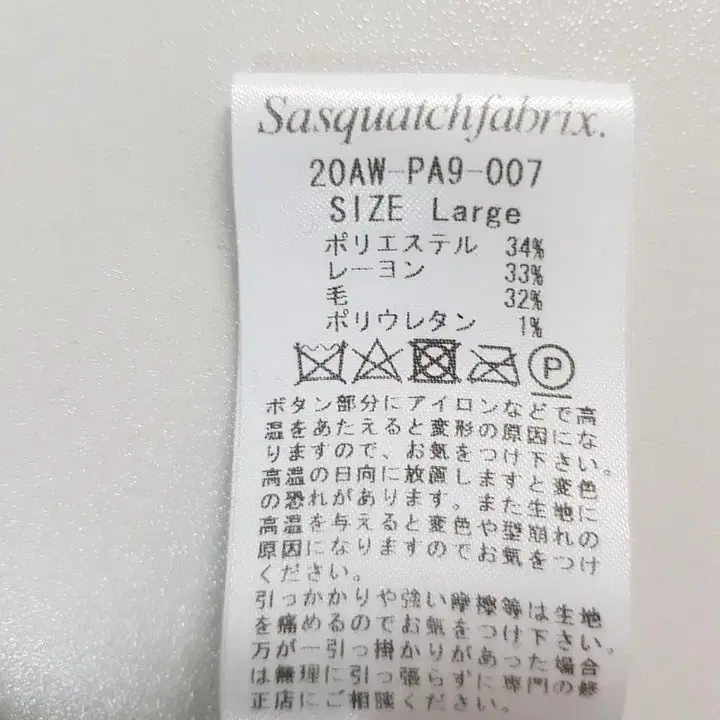 Sasquatchfabrix.
20AW-PA9-007
SIZE Large
ポリエステル 34%
レーヨン 33%
毛 32%
ポリウレタン 1%
P
ボタン部分にアイロンなどで高
温をあたえると変形の原因にな
りますので、お気をつけ下さい。
高温の日向に放置しますと変色
の恐れがあります。また生地に
高温を与えると変色や型崩れの
原因になりますのでお気をつけ
ください。
引っかかりや強い摩擦等は生地
を痛めるのでお気をつけ下さい。
万が一引っ掛かりがあった場合
は無理に引っ張らずに専門の修
正店にご相談ください。